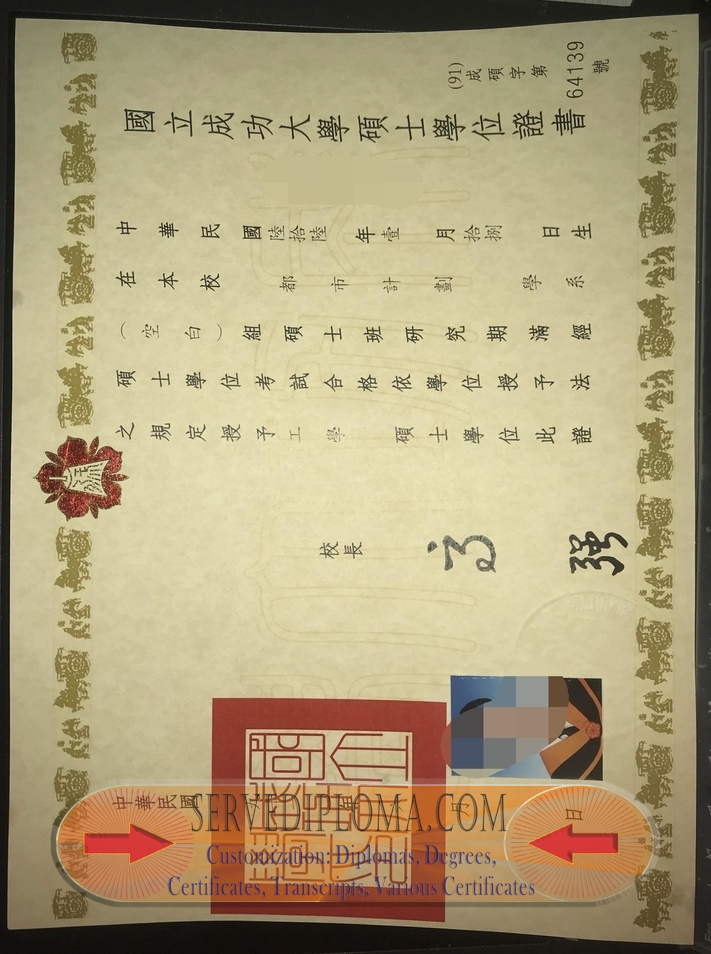 (91)成碩字第64139號
國立成功大學碩士學位證書
中華民國陸拾陸年壹月拾捌日生
在本校都市計劃學系
(空白)組碩士班研究期滿經
碩士學位考試合格依學位授予法
之規定授予工學碩士學位此證
校長
高強
中華民國
年
月
日
SERVEDIPLOMA.COM
Customization: Diplomas, Degrees,
Certificates, Transcripts, Various Certificates